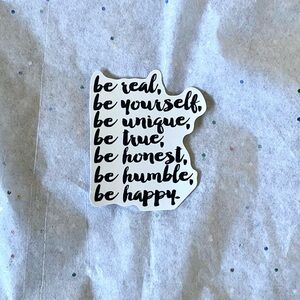 be real,
be yourself,
be unique,
be true,
be honest,
be humble,
be happy.